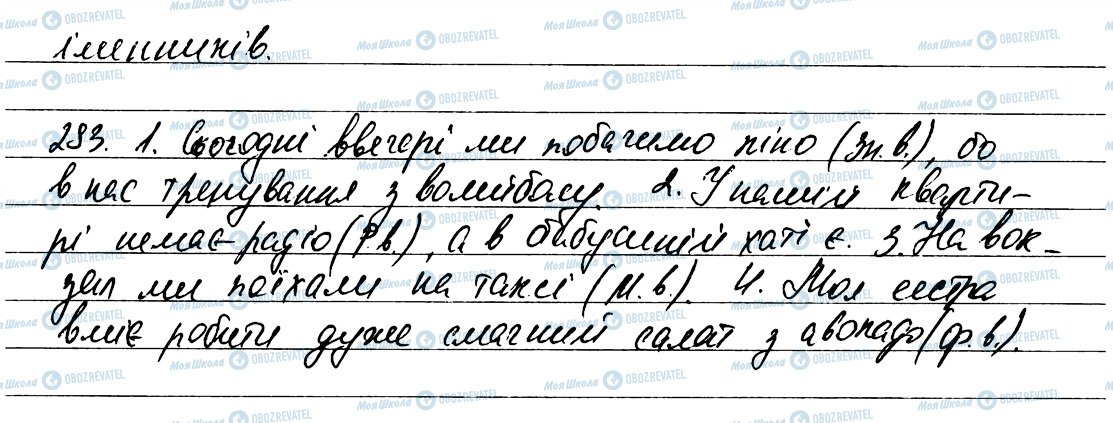 іменників.
293. 1. Сьогодні ввечері ми побачимо кіно (Зн.в.), бо
в нас тренування з волейболу. 2. У нашій кварти-
рі немає радіо (Р.в.), а в бабусиній хаті є. 3. На вок-
зал ми поїхали на таксі (М.в.). 4. Моя сестра
вміє робити дуже смачний салат з авокадо (Ор.в.).